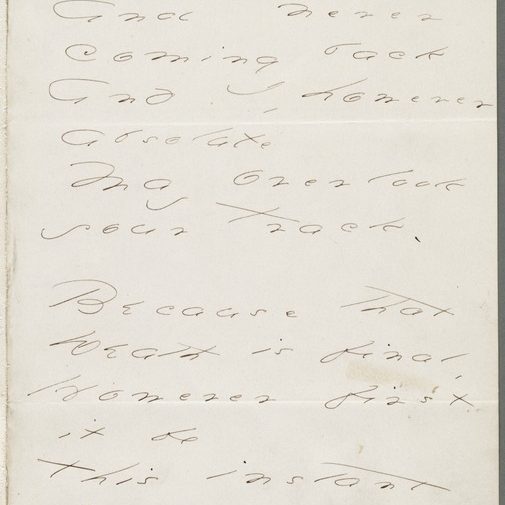 And never
coming back
And I, however
absolute
May overlook
your Track.
Because that
Death is final,
However first
it be
This instant